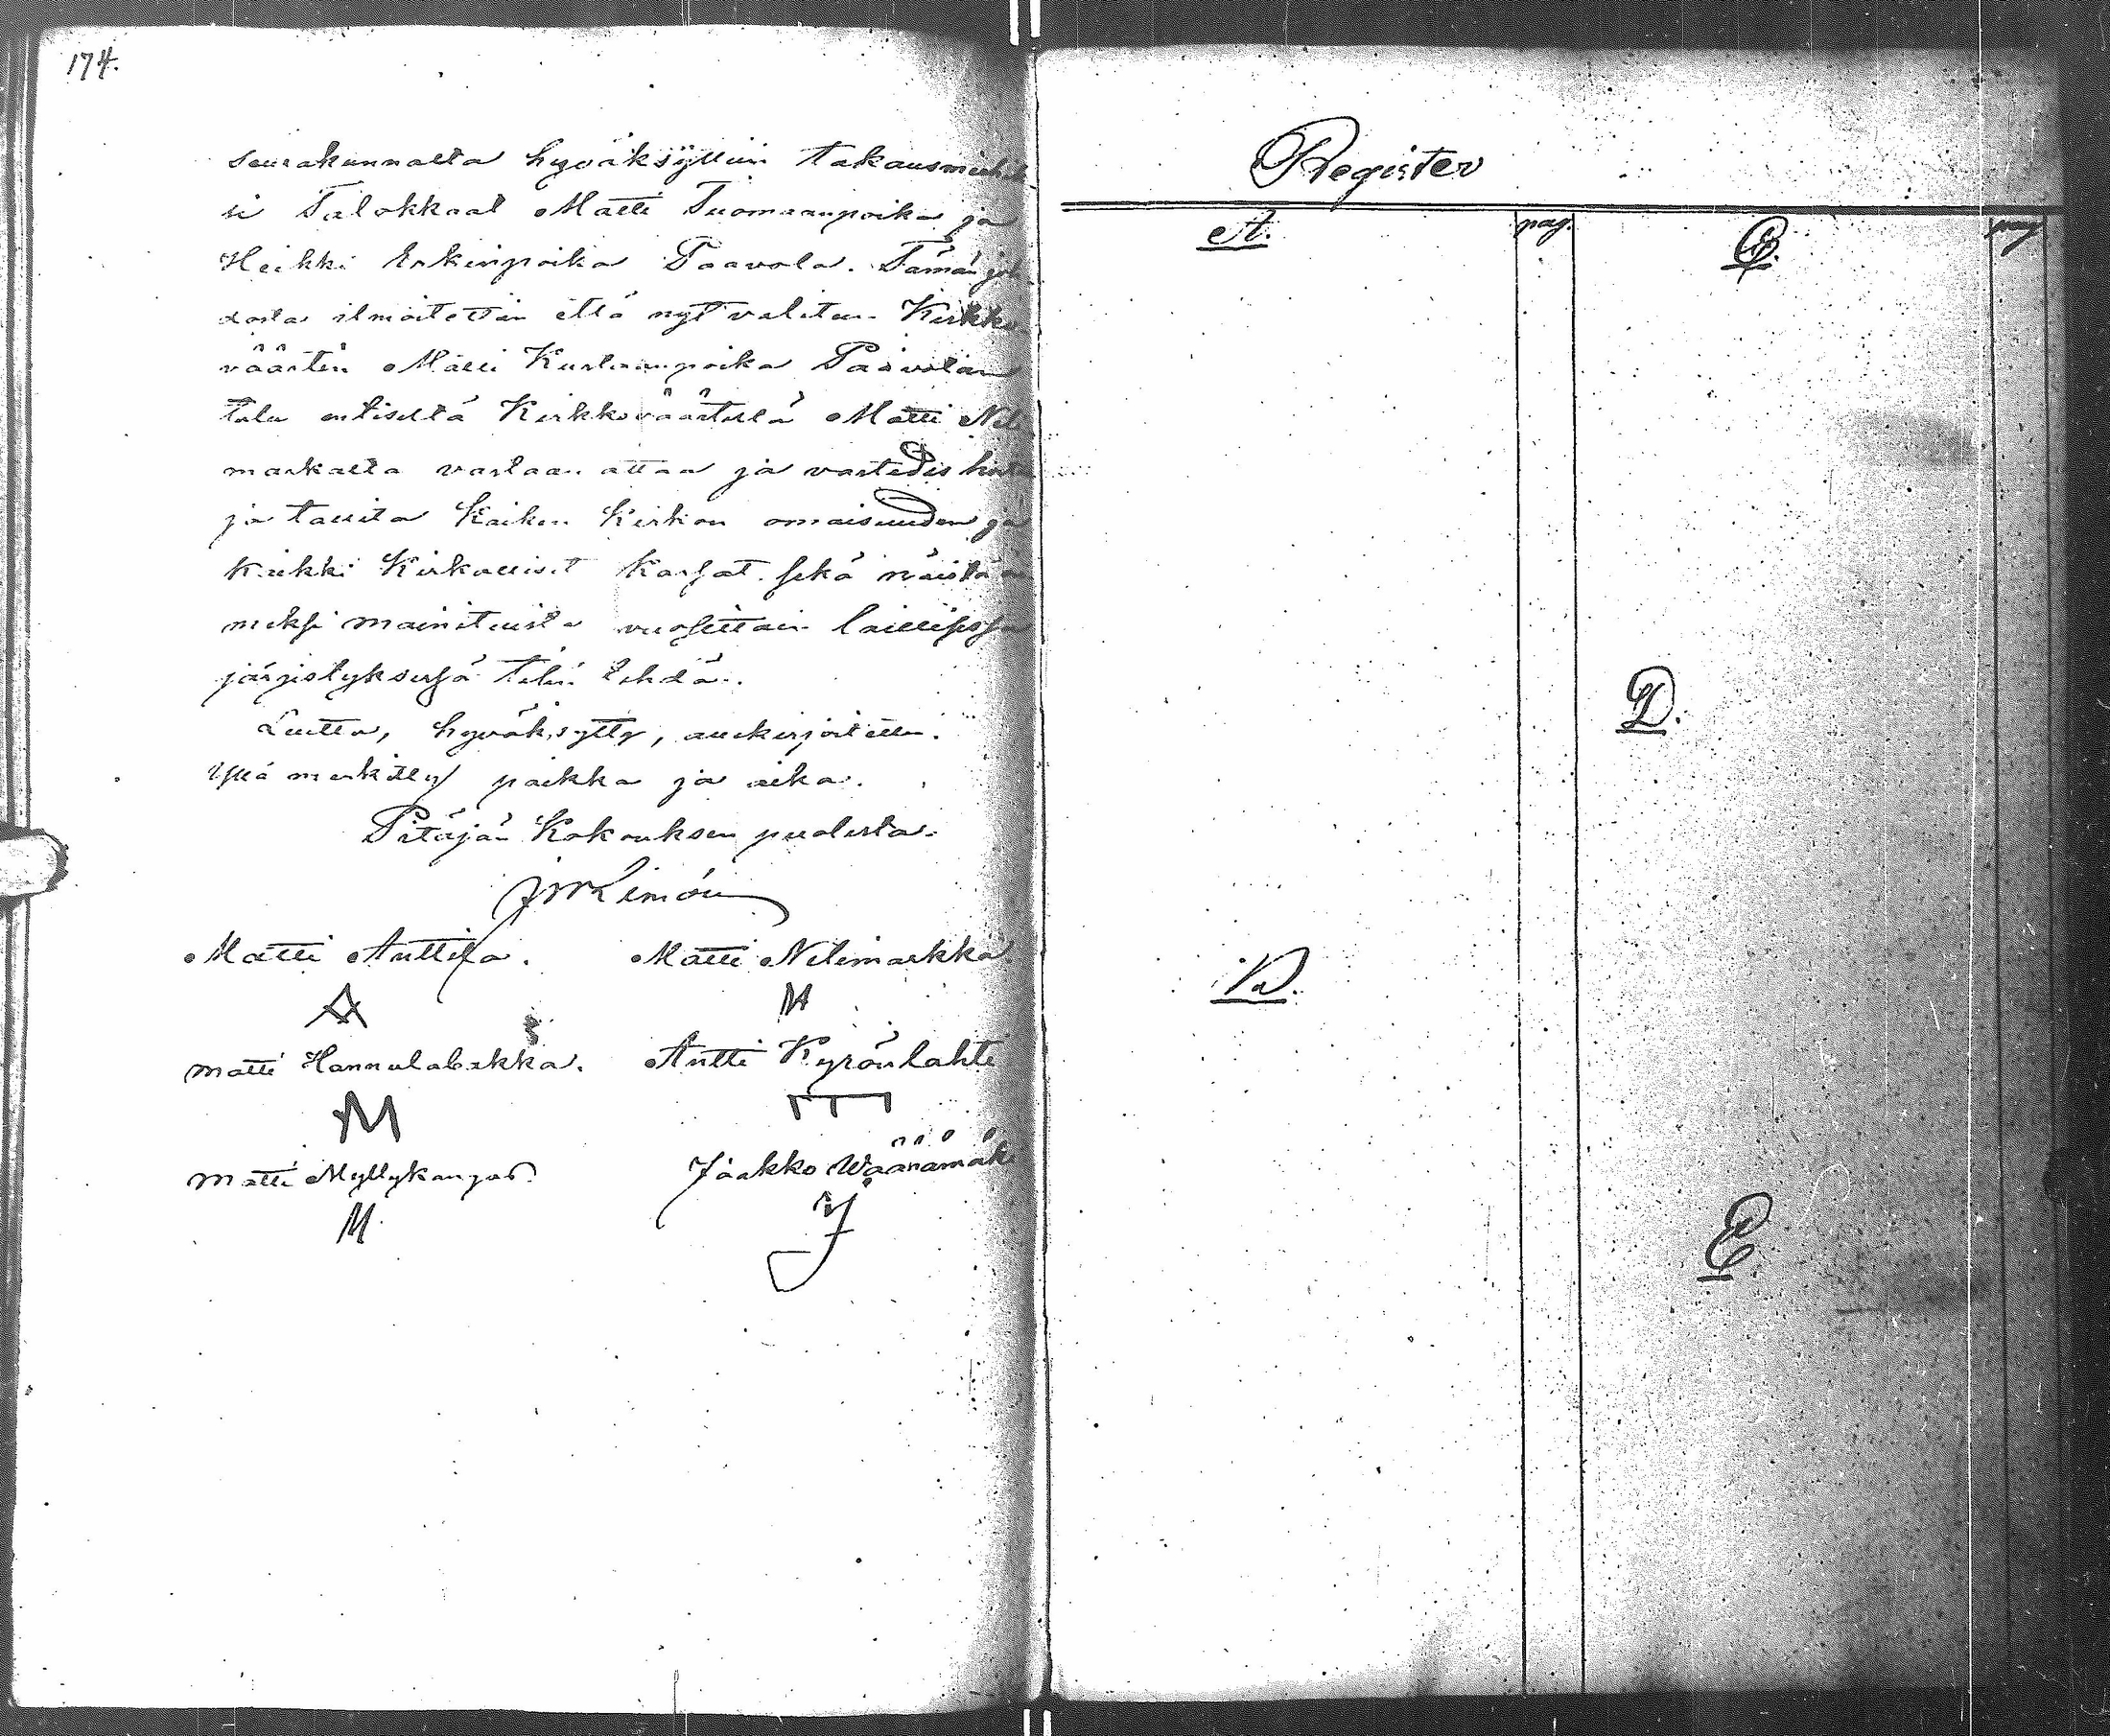 174.
seurakunnalta hyväksyttiin takausmiehik
si Talokkaat Matti Tuomaanpoika ja
Heikki Erkinpoika Paavola. Tämän joh
dosta ilmoitettiin että nyt valitun Kirkko-
väärtin Matti Kustaanpoika Paavolan
tulee entiseltä Kirkkoväärtiltä Matti Neli
markalta vastaan ottaa ja vastedes hoitaa
ja tallita Kaiken Kirkon omaisuuden ja
kaikki Kirkolliset Kassat sekä näistä
meksi mainituista vuosittain laillisessa
järjistyksessä tilin tehdä.
Luettu, hyväksytty, allekirjoitettu.
Yllä merkitty paikka ja aika.
Pitäjän Kokouksen puolesta.
Matti Anttila. Matti Nelimarkka
M
Matti Hannulabakka. Antti Kyrönlahti
M
Matti Myllykangas. Jaakko Wäänämäki
M. J
Register
A. pag. C. pag
D.
B.
E